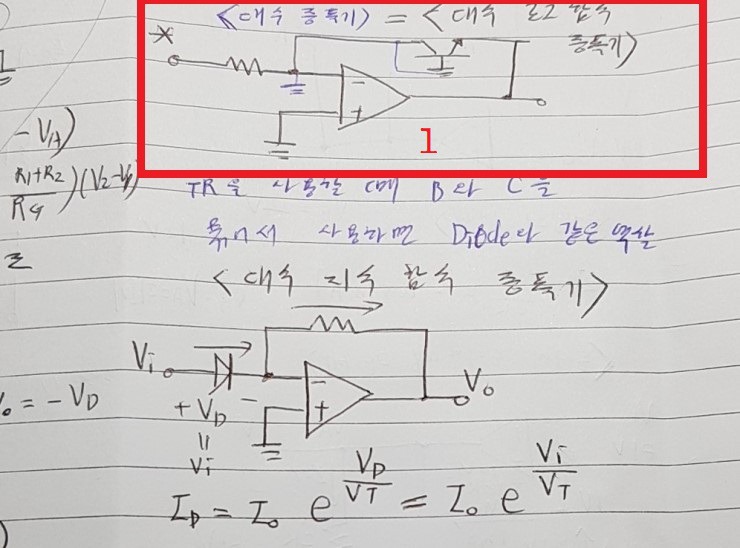 <대수 증폭기> = <대수 로그 함수
증폭기>
*
−
+
1
- VA)
R1+R2
RG
)(V2-V1)
TR을 사용할 때 B와 C를
묶어서 사용하면 Diode와 같은 역할
<대수 지수 함수 증폭기>
Vi
−
+
Vo
+ VD −
= - VD
||
Vi
ID = Io e VD/VT = Io e Vi/VT